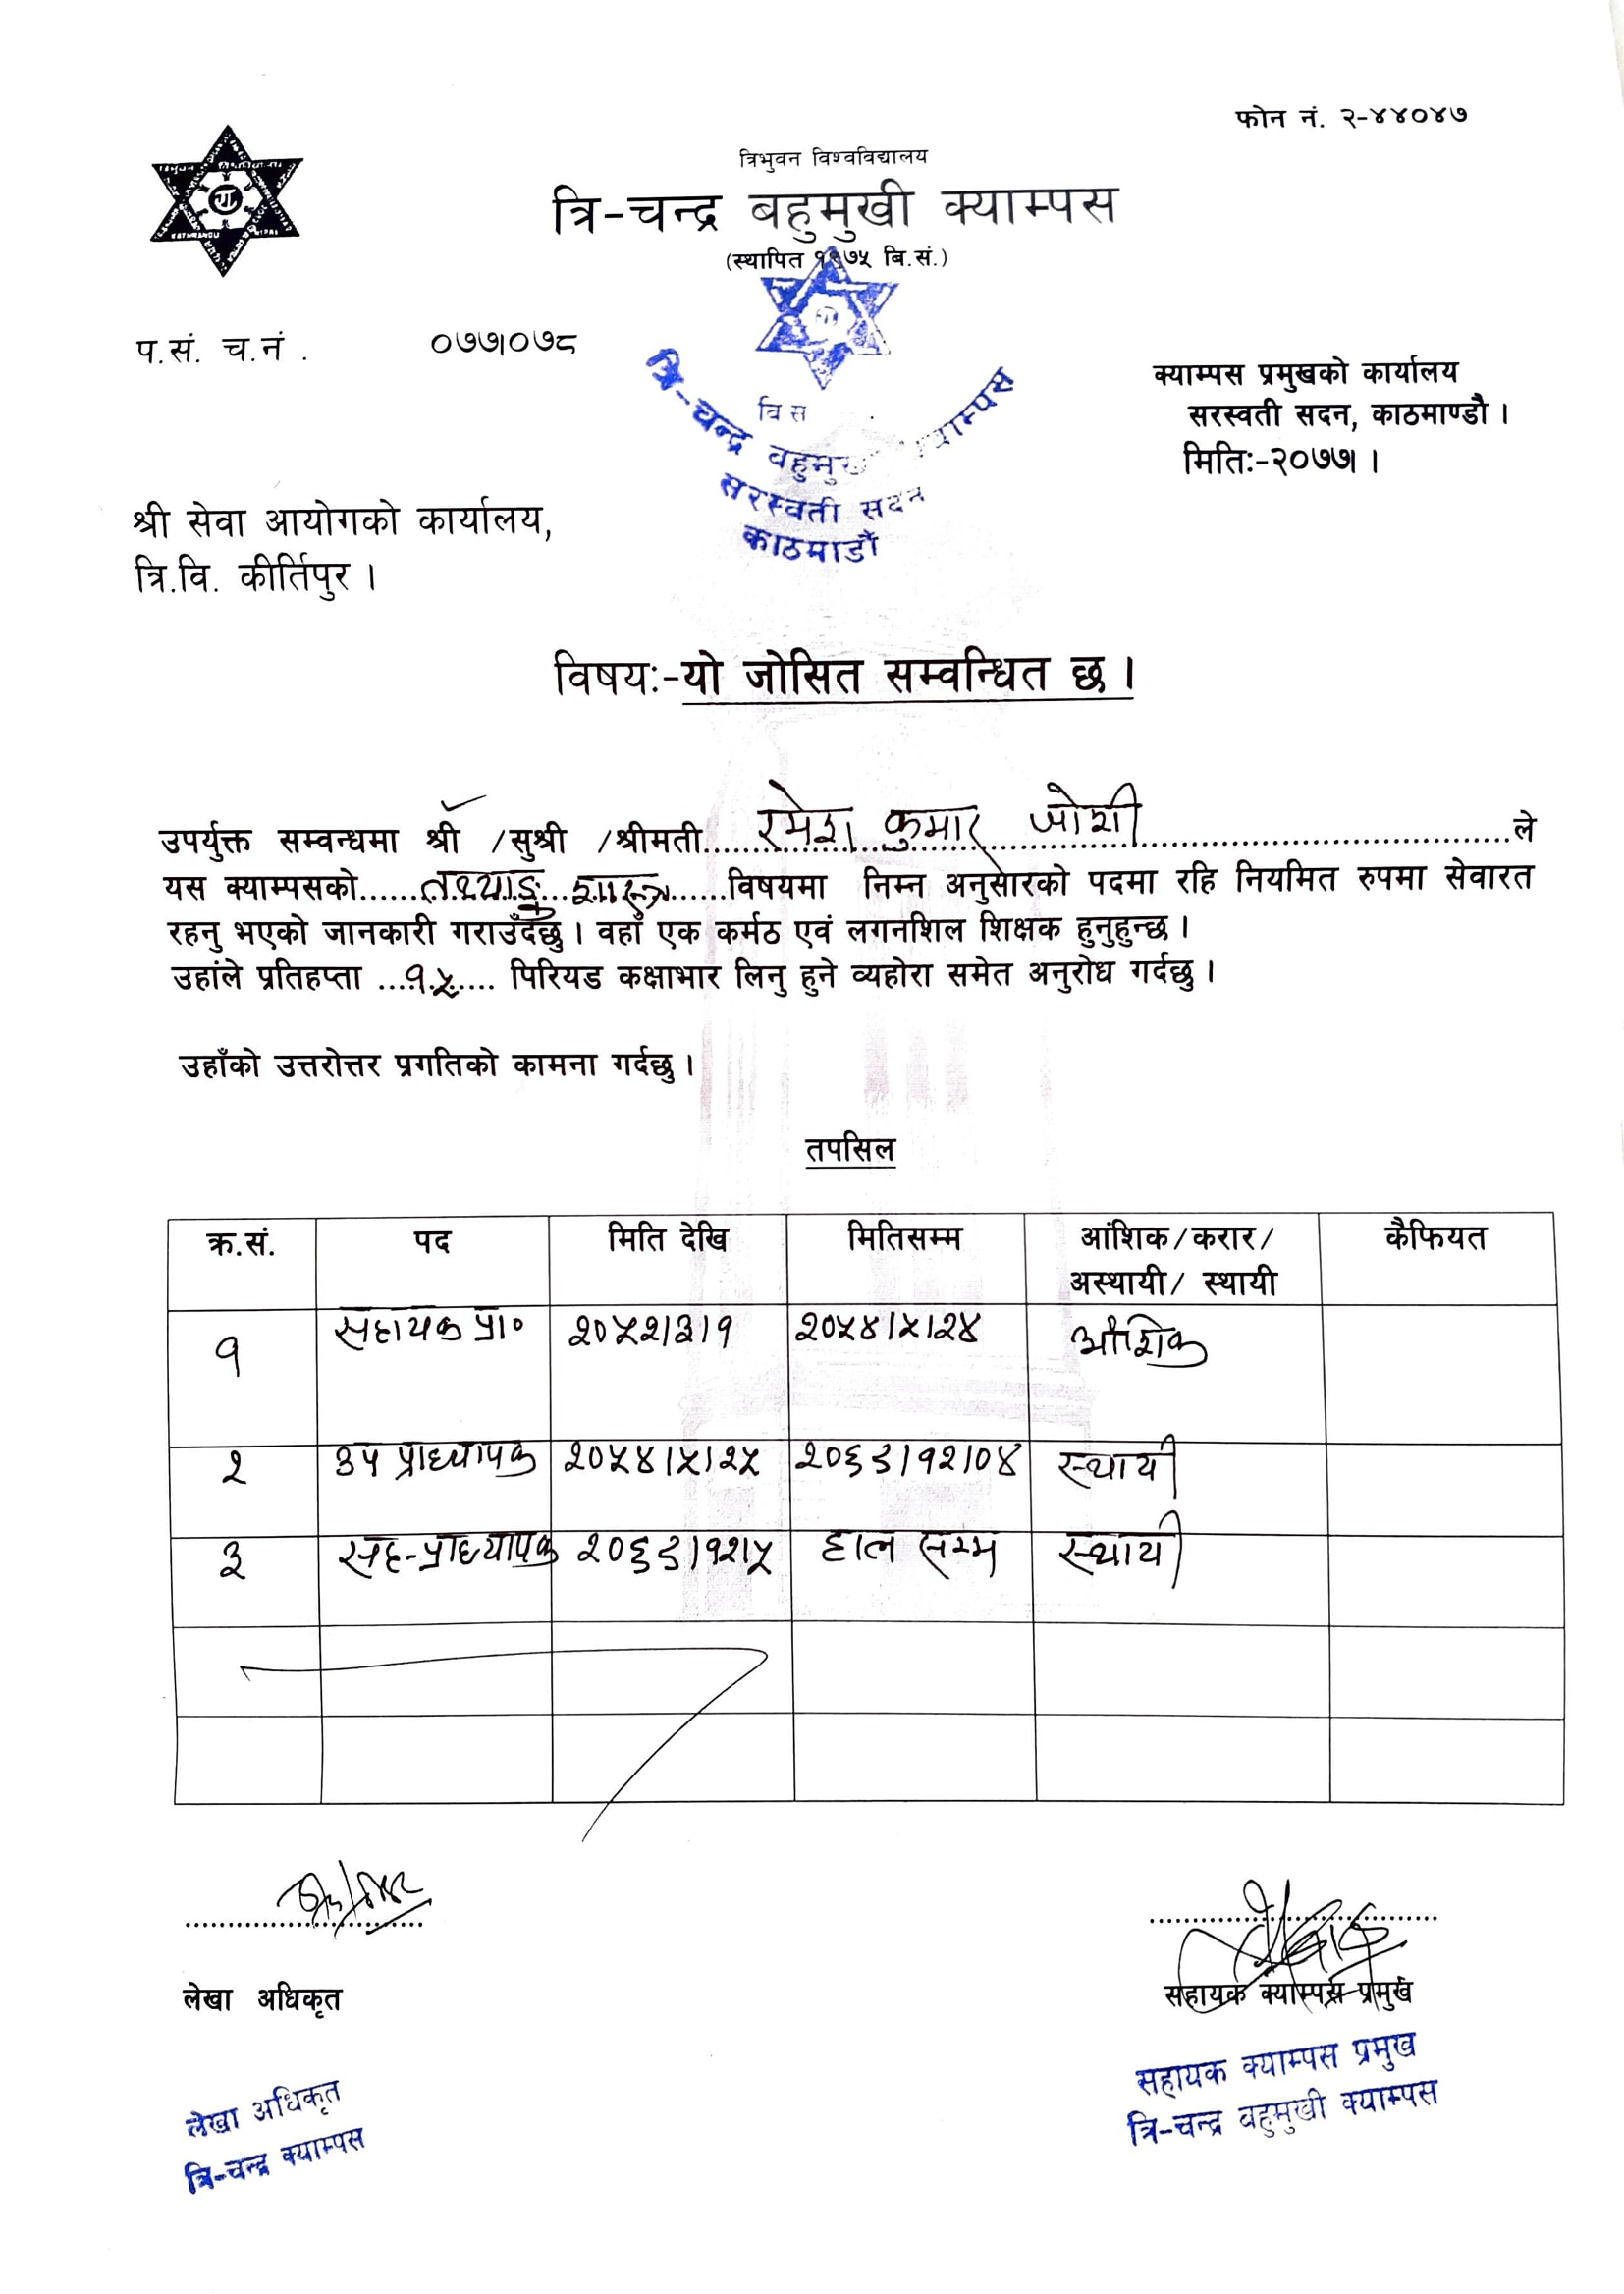 फोन नं. २-४४०४७
त्रिभुवन विश्वविद्यालय
त्रि-चन्द्र बहुमुखी क्याम्पस
(स्थापित १९७५ बि.सं.)
प.सं. च.नं . ०७७।०७८
त्रि-चन्द्र बहुमुखी क्याम्पस
सरस्वती सदन
काठमाडौं
क्याम्पस प्रमुखको कार्यालय
सरस्वती सदन, काठमाण्डौ ।
मितिः-२०७७। ।
श्री सेवा आयोगको कार्यालय,
त्रि.वि. कीर्तिपुर ।
विषयः-यो जोसित सम्वन्धित छ ।
उपर्युक्त सम्वन्धमा श्री /सुश्री /श्रीमती रमेश कुमार जोशी ले
यस क्याम्पसको तथ्याङ्क शास्त्र विषयमा निम्न अनुसारको पदमा रहि नियमित रुपमा सेवारत
रहनु भएको जानकारी गराउँदछु । वहाँ एक कर्मठ एवं लगनशिल शिक्षक हुनुहुन्छ ।
उहांले प्रतिहप्ता ...१५.... पिरियड कक्षाभार लिनु हुने व्यहोरा समेत अनुरोध गर्दछु ।
उहाँको उत्तरोत्तर प्रगतिको कामना गर्दछु ।
तपसिल
क्र.सं. पद मिति देखि मितिसम्म आंशिक/करार/ कैफियत
अस्थायी/ स्थायी
१ सहायक प्रा० २०५२।३।१ २०५४।५।२४ आंशिक
२ उप प्राध्यापक २०५४।५।२५ २०६९।१२।०४ स्थायी
३ सह-प्राध्यापक २०६९।१२।५ हाल सम्म स्थायी
लेखा अधिकृत सहायक क्याम्पस प्रमुख
सहायक क्याम्पस प्रमुख
त्रि-चन्द्र बहुमुखी क्याम्पस
लेखा अधिकृत
त्रि-चन्द्र क्याम्पस